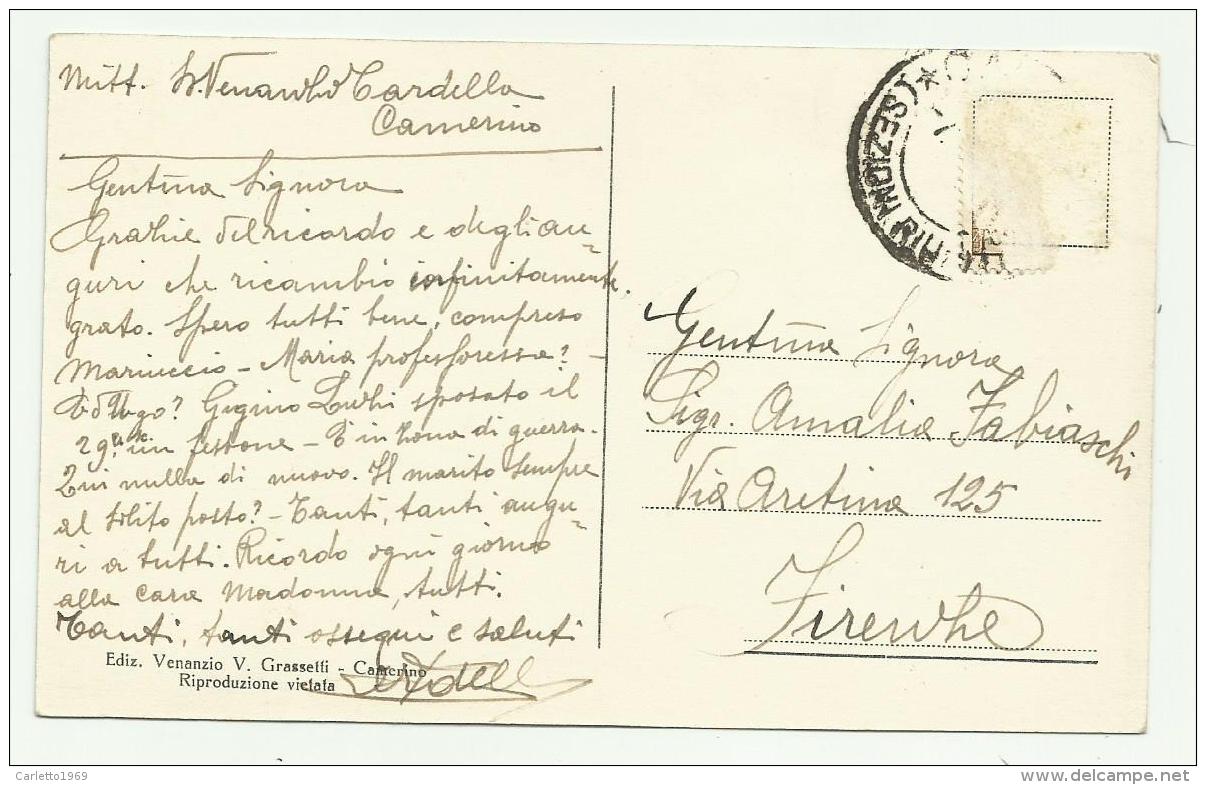 Mitt. D. Venanzio Cardella
Camerino
Gentma Signora
Grazie del ricordo e degli au-
guri che ricambio infinitamente
grato. Spero tutti bene, compreso
Mariuccio - Maria professoressa? -
Ed Ugo? Gigino sposato il
29 in - È in zona di guerra.
Qui nulla di nuovo. Il marito sempre
al solito posto? - Tanti, tanti augu-
ri a tutti. Ricordo ogni giorno
alla cara Madonna, tutti.
Tanti, tanti ossequi e saluti
Ediz. Venanzio V. Grassetti - Camerino
Riproduzione vietata
Gentma Signora
Sigr. Amalia Fabiaschi
Via Aretina 125
Firenze
Carletto1969
www.delcampe.net